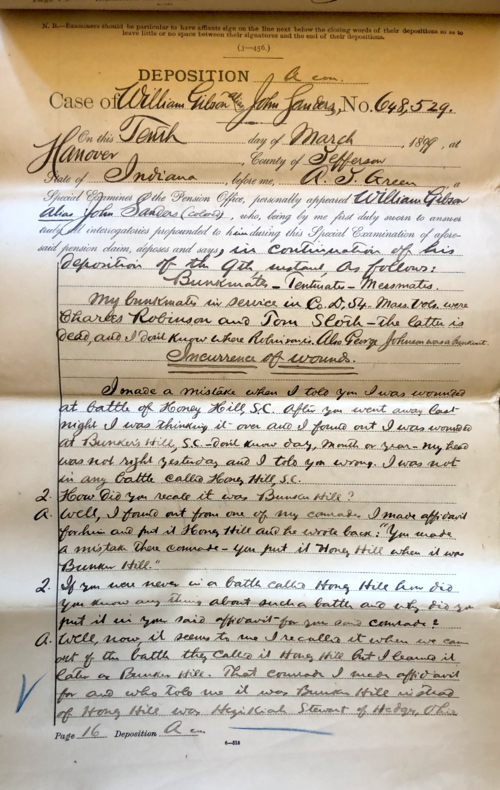 N. B.—Examiners should be particular to have affiants sign on the line next below the closing words of their depositions so as to
leave little or no space between their signatures and the end of their depositions.
(3—456.)
DEPOSITION A con.
Case of William Gilson John Sanders, No. 648,529.
On this Tenth day of March, 1899, at
Hanover County of Jefferson
State of Indiana, before me, A. T. Green, a
Special Examiner of the Pension Office, personally appeared William Gilson
alias John Sanders (colored), who, being by me first duly sworn to answer
truly all interrogatories propounded to him during this Special Examination of afore-
said pension claim, deposes and says, in continuation of his
deposition of the 9th instant, as follows:
Bunkmates—Tentmates—Messmates.
My bunkmates in service in Co. D, 54 Mass Vols. were
Charles Robinson and Tom — the latter is
dead, and I don't know where Robinson is. Also George Johnson was a bunkmt.
Incurrence of wounds.
I made a mistake when I told you I was wounded
at battle of Honey Hill, S.C. After you went away last
night I was thinking it over and I found out I was wounded
at Bunker's Hill, S.C.—don't know day, month or year—my head
was not right yesterday and I told you wrong. I was not
in any battle called Honey Hill, S.C.
Q. How did you recall it was Bunker Hill?
A. Well, I found out from one of my comrades I made affidavit
for him and put it Honey Hill and he wrote back: "You made
a mistake there comrade—you put it Honey Hill when it was
Bunker Hill."
Q. If you were never in a battle called Honey Hill how did
you know any thing about such a battle and why did you
put it in your said affidavit for your said comrade?
A. Well, now, it seems to me I recalled it when we came
out of the battle they called it Honey Hill but I learned it
later as Bunker Hill. That comrade I made affidavit
for and who told me it was Bunker Hill instead
of Honey Hill was Hezikiah Stewart of Ohio
Page 16 Deposition A con.
6—518